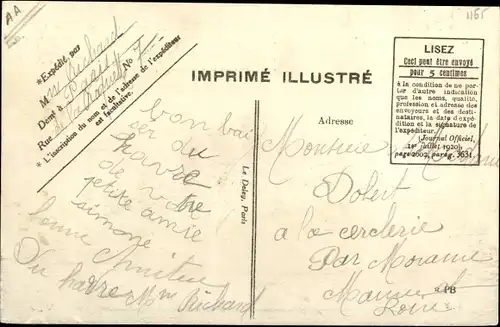 AA
1165
*Expédié, par
Mme Richard
Domt à
Rue No 7
* L'inscription du nom et de l'adresse de l'expéditeur
est facultative.
IMPRIMÉ ILLUSTRÉ
LISEZ
Ceci peut être envoyé
pour 5 centimes
à la condition de ne por-
ter d'autre indication
que les noms, qualité,
profession et adresse des
envoyeurs et des desti-
nataires, la date d'expé-
dition et la signature de
l'expéditeur.
(Journal Officiel,
1er juillet 1920,
page 2009, parag. 3631.
bon bai
ser du
havre
de votre
petite amie
simone
bonne Amitié
Du havre Mme Richard
Le Deley, Paris
Adresse
Monsieur Madame
Dobert
a la cerclerie
Par Morame
Maine
Loire
* PB